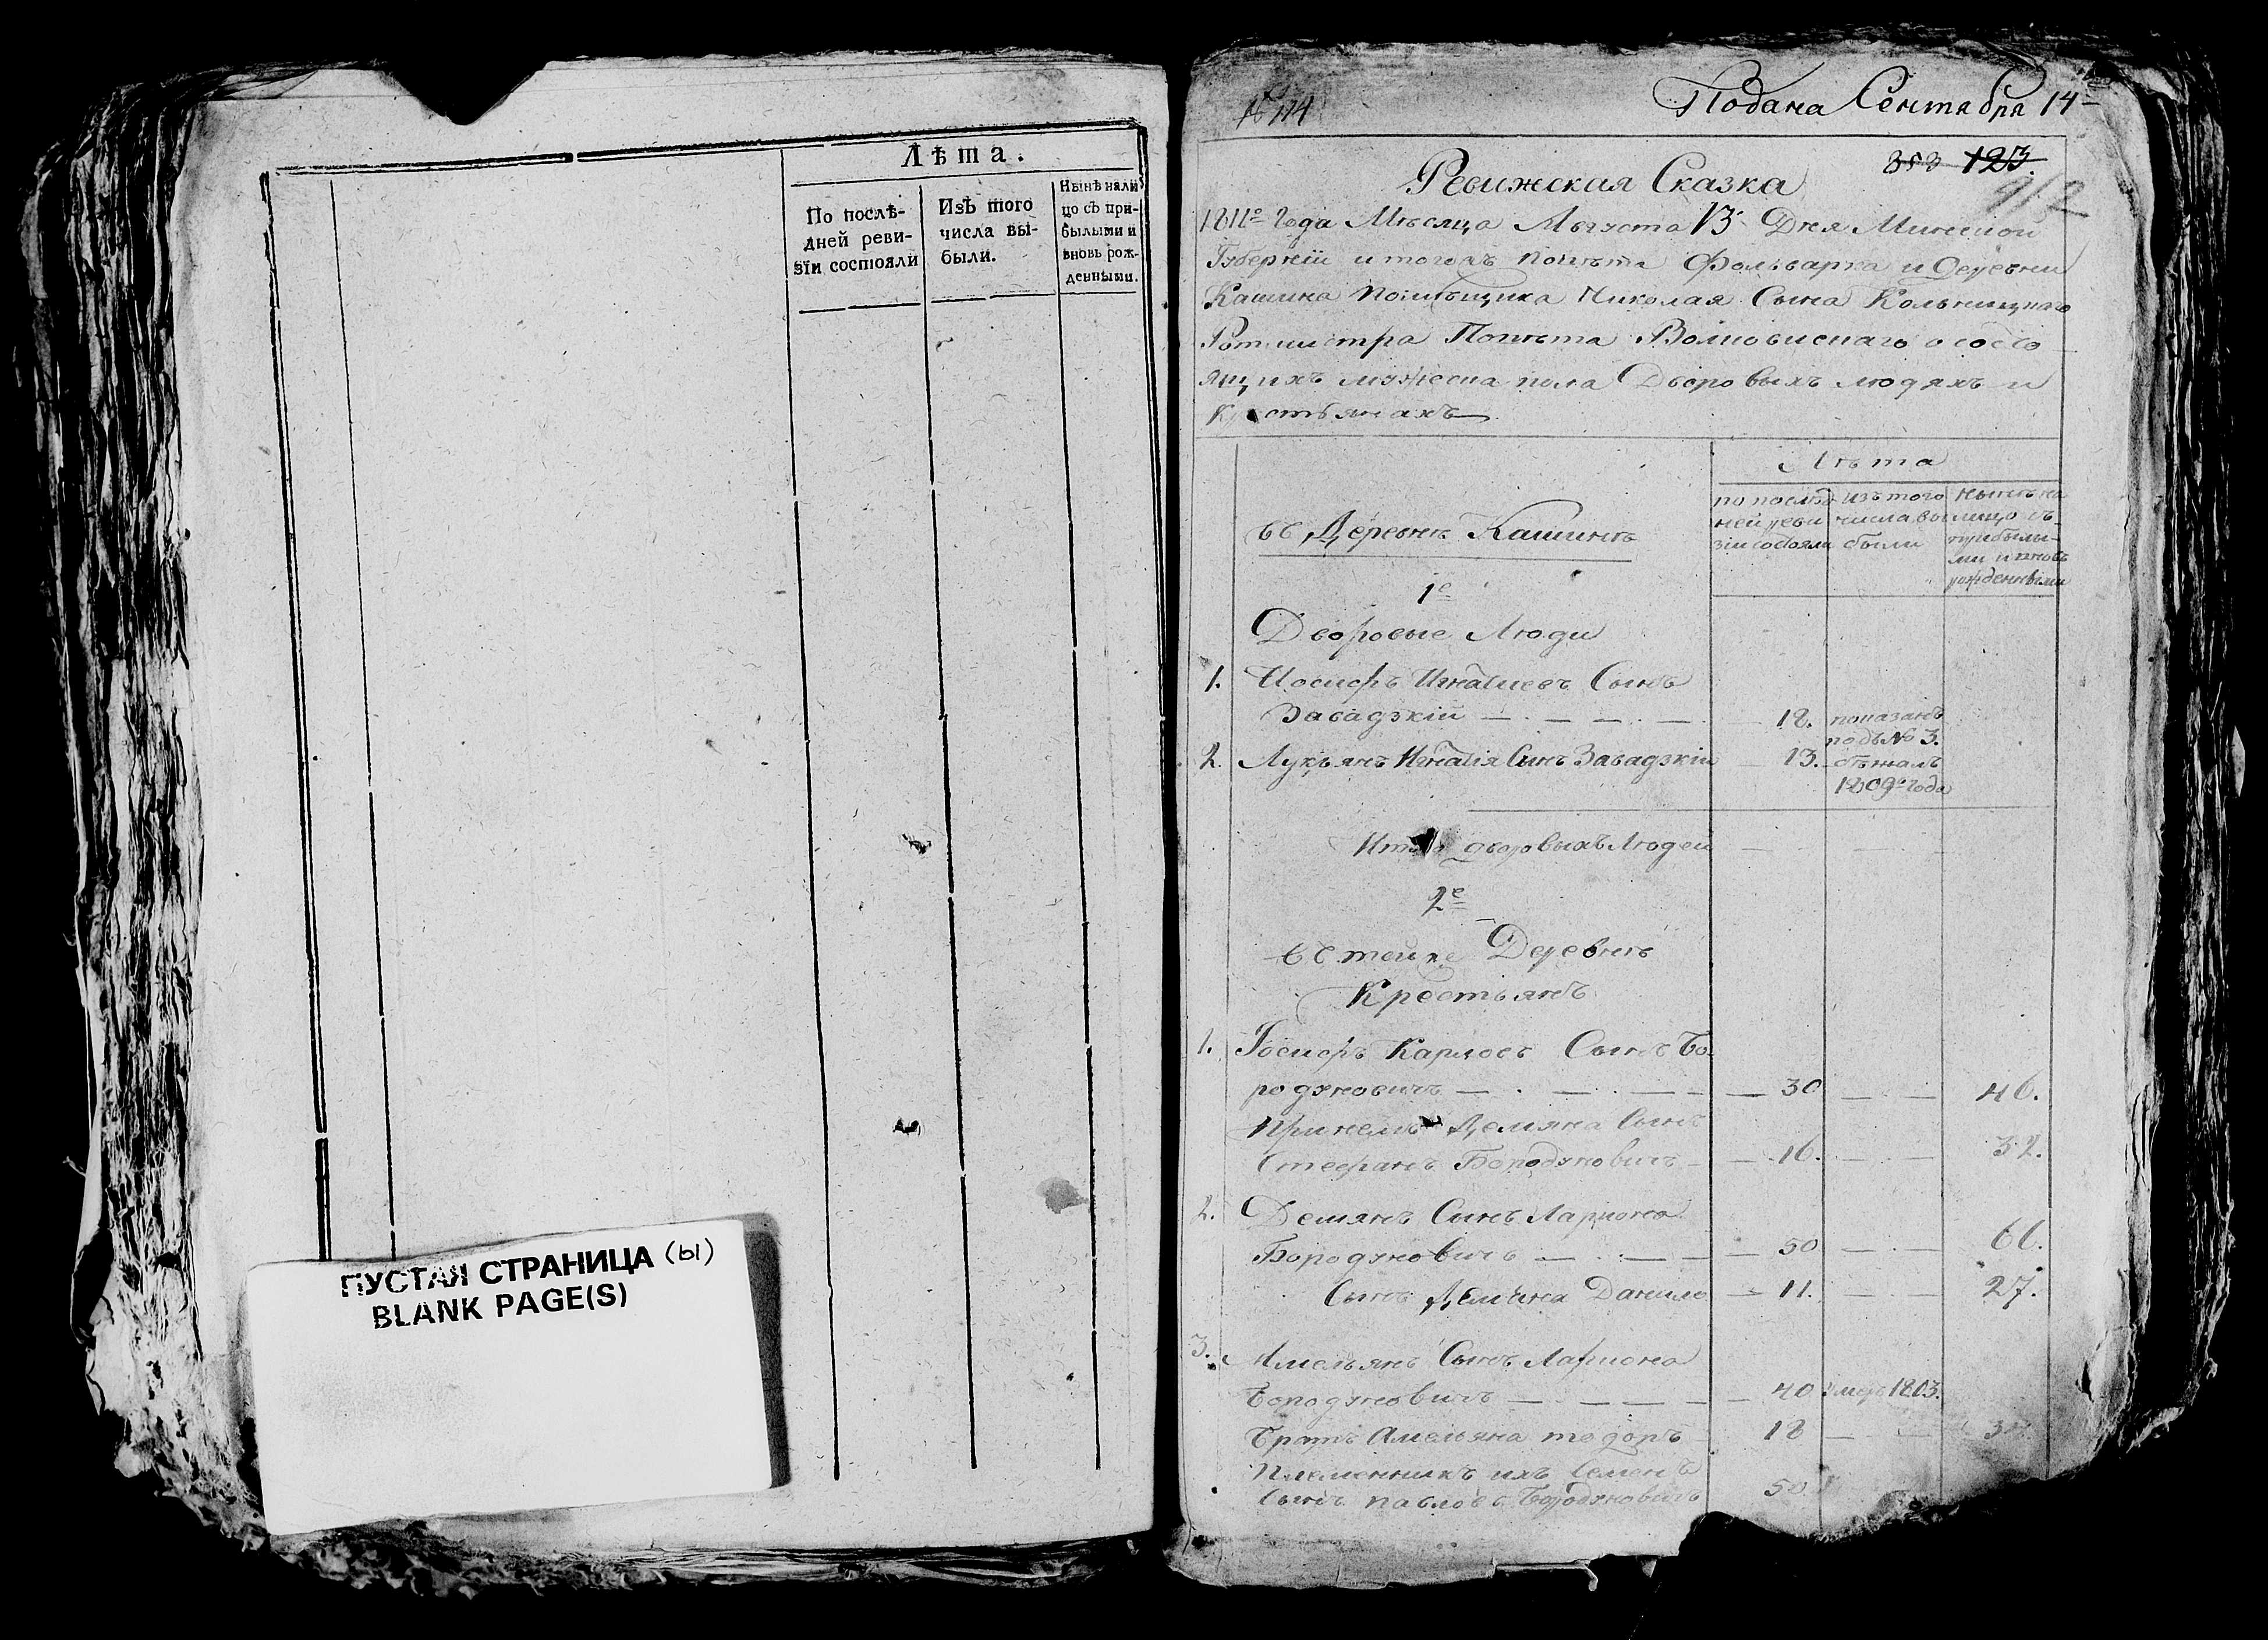 Лѣта.
По послѣ-
дней реви-
зїи состояли
Изъ того
числа вы-
были.
Нынѣ нали
цо съ при-
былыми и
вновь рож-
денными.
ПУСТАЯ СТРАНИЦА (ы)
BLANK PAGE(S)
Подана Сентября 14
№ 114
353 123.
912
Ревижская Сказка
1811го Года Мѣсяца Августа 13 Дня Минской
Губернїи и тогожъ Повѣта Фольварка и Деревни
Кашина помѣщика Николая Сына
Ротмистра Повѣта Волковискаго о состо
ящихъ мужеска пола Дворовыхъ людяхъ и
Крестьянахъ
Лѣта
по послѣд
ней реви
зіи состояли
изъ того
числа вы
были
нынѣ на
лицо съ
прибылы-
ми и вновь
рожденными
въ Деревнѣ Кашинѣ
1е
Дворовые Люди
1. Иосифъ Игнатиевъ Сынъ
Завадзкїй 18. показанъ
подъ № 3.
2. Лукьянъ Игнатія Синъ Завадзкій 13. бѣжалъ
1809го года
Итого дворовыхъ Людей
2е
въ тейже Деревнѣ
Крестьянъ
1. Іосифъ Карповъ Сынъ Бо
родуновичъ 30 46.
Приемышъ Демяна Сынъ
Стефанъ Бородуновичъ 16. 32.
2. Демянъ Синъ Лариона
Бородуновичъ 50 66.
Сынъ Демьяна Данило 11. 27.
3. Амельянъ Сынъ Лариона
Бородуновичъ 40 умеръ 1803.
Братъ Амельяна тодоръ 18
Племенникъ ихъ Семенъ
Сынъ павловъ Бородуновичъ 50